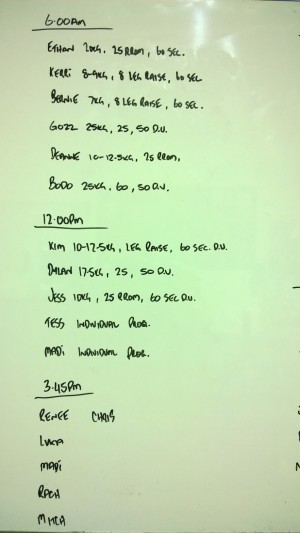 6:00AM
ETHAN 20KG, 25 RROM, 60 SEC.
KERRI 8-9KG, 8 LEG RAISE, 60 SEC
BERNIE 7KG, 8 LEG RAISE, 60 SEC.
GOZZ 25KG, 25, 50 D.U.
DEANNE 10-12.5KG, 25 RROM,
BODO 25KG, 60, 50 D.U.
12:00PM
KIM 10-12.5KG, LEG RAISE, 60 SEC. D.U.
DYLAN 17.5KG, 25, 50 D.U.
JESS 10KG, 25 RROM, 60 SEC D.U.
TESS INDIVIDUAL PROG.
MADI INDIVIDUAL PROG.
3.45PM
RENEE CHRIS
LUKA
MADI
RACH